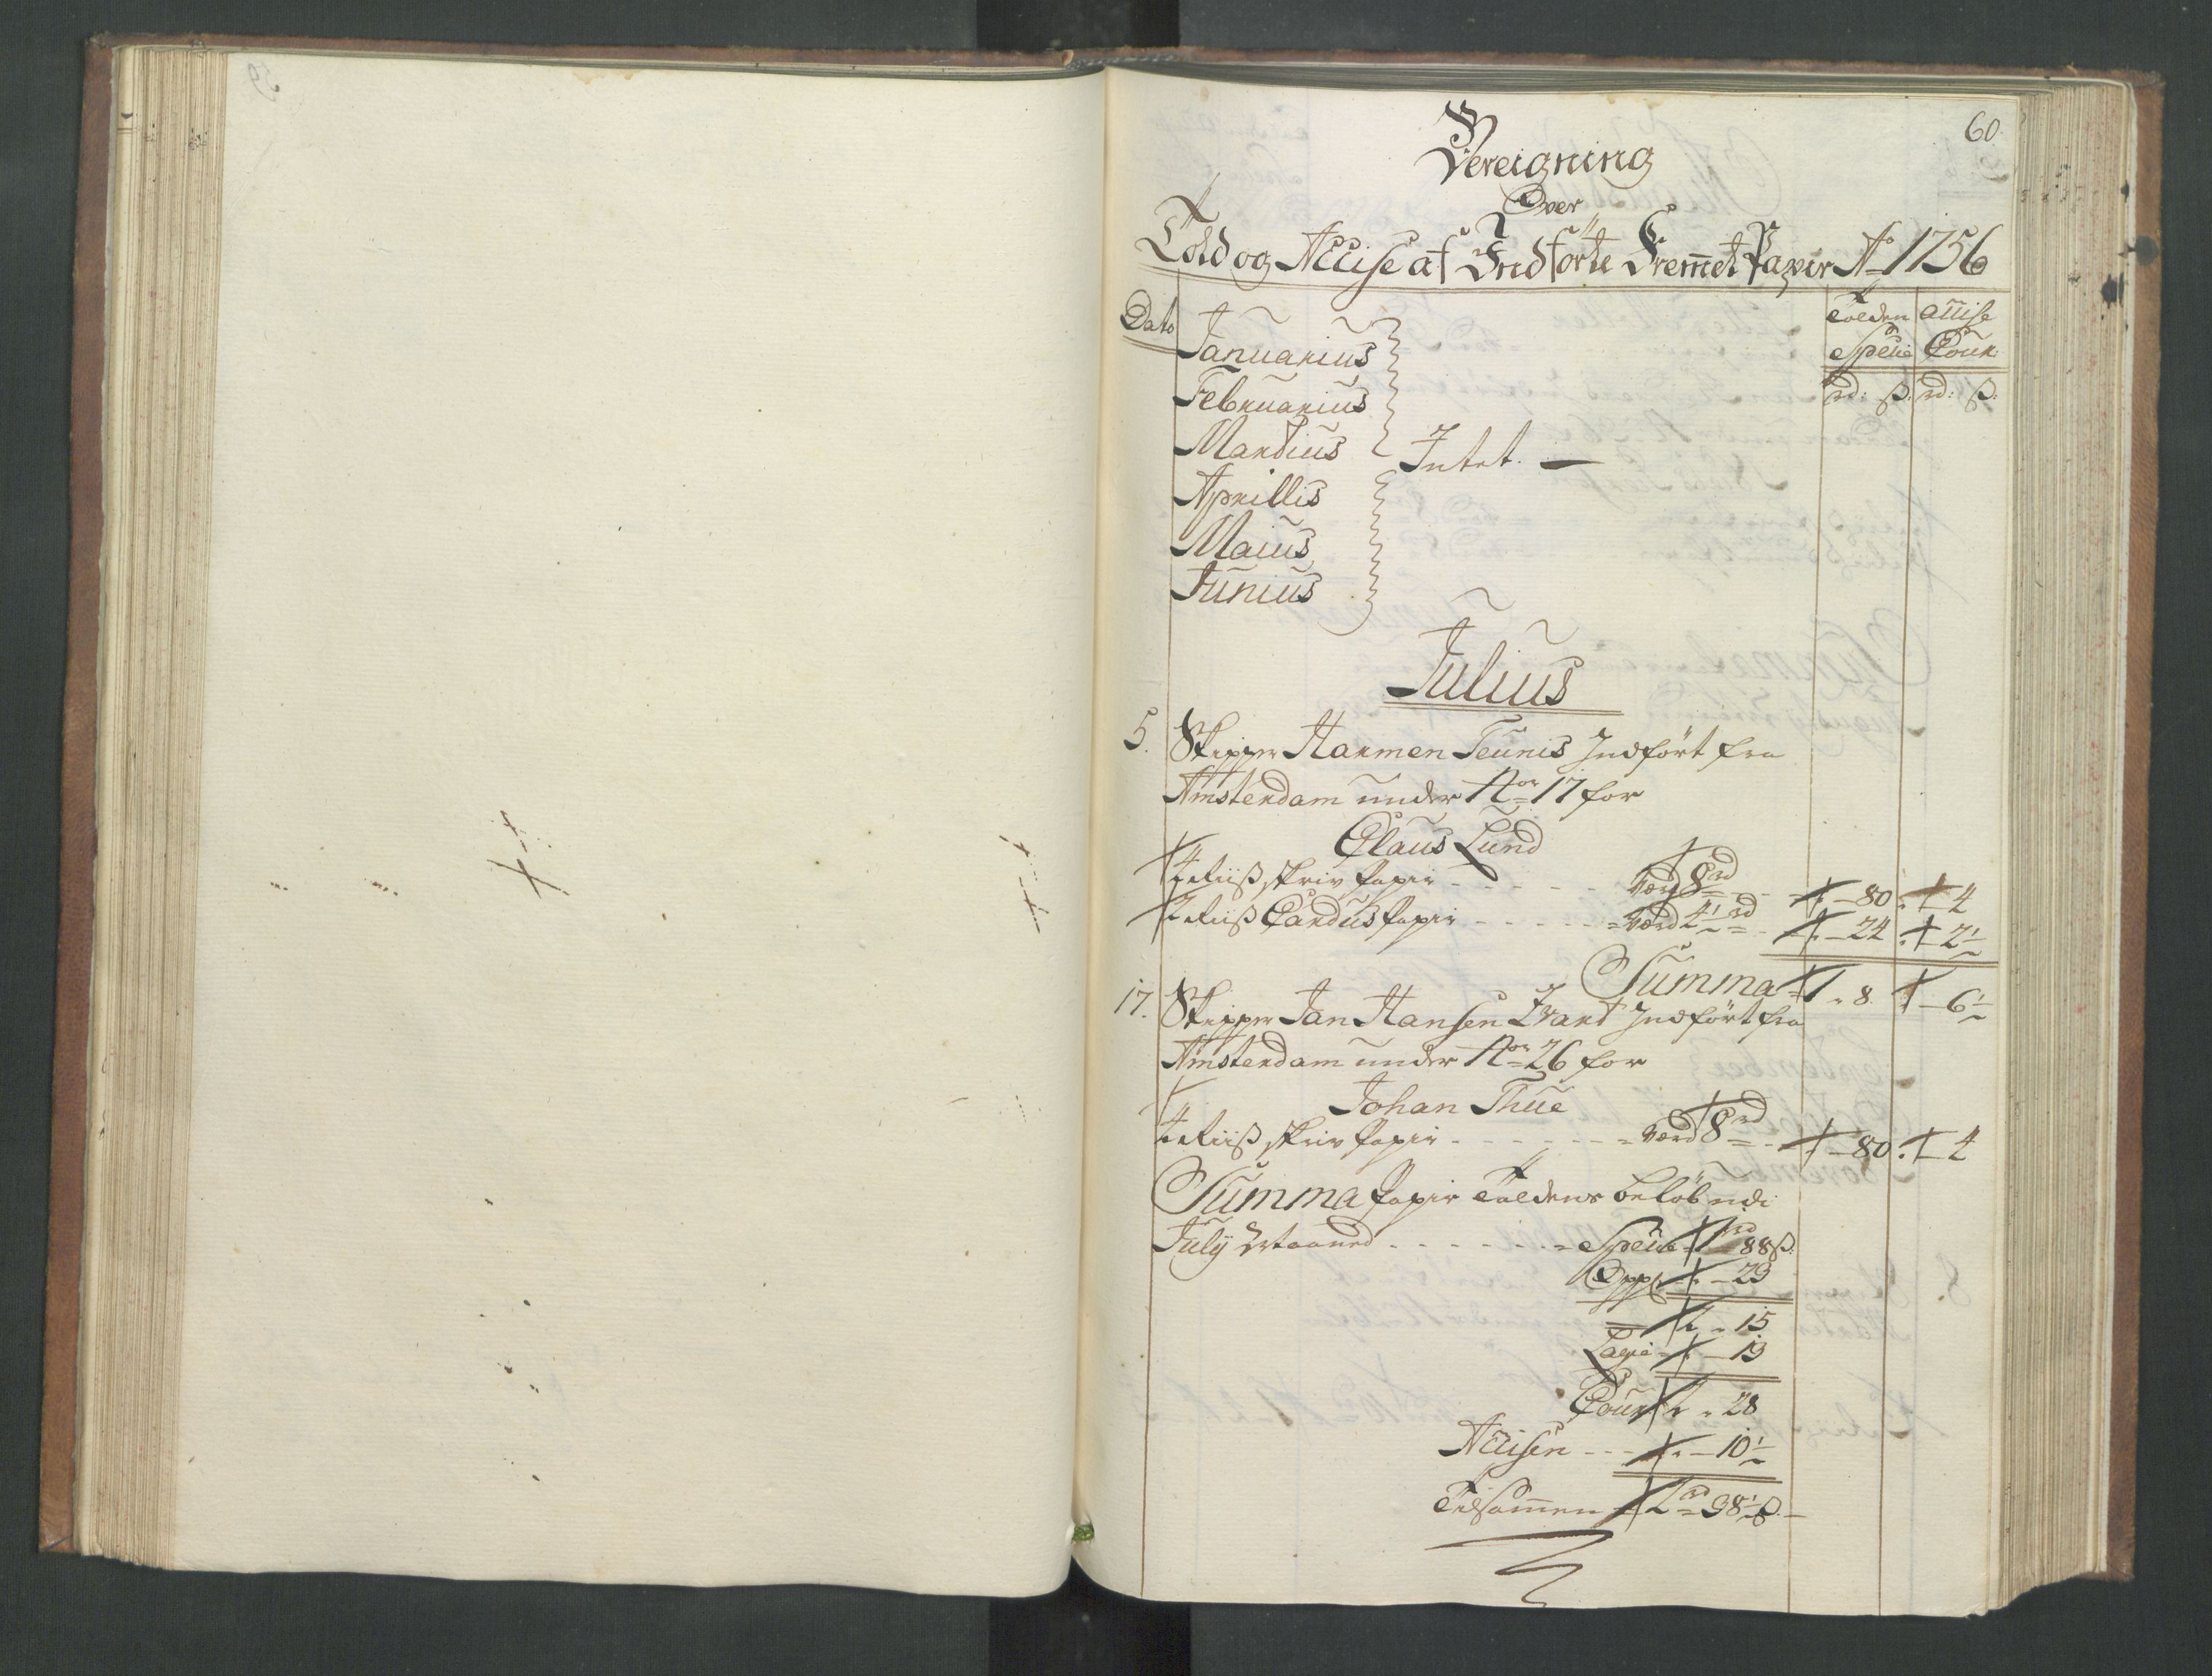 60.
Bereigning
Over
Told og Accise af Indförte Fremmet Papir Ao 1756
Dato
Tolden Accise
Specie Cour:
rd: ß: rd: ß:
Januarius
Februarius
Martius Intet. —
Aprillis
Maius
Junius
Julius
5. Skipper Harmen Teunis Indfört fra
Amsterdam under Nor 17 for
Claus Lund
4 Riiß skriv Papir - - - - - - værd 8 rd - 80 4
2 Riiß Cardus Papir - - - - - - værd 4 1/2 rd - 24 2 1/2
Summa 1 " 8 - 6 1/2
17. Skipper Jan Hansen Zvart Indfört fra
Amsterdam under Nor 26 for
Johan Thue
4 Riiß skriv Papir - - - - - - værd 8 rd - 80 4
Summa Papir Toldens belöb udi
July Maaned - - - - - - Specie 1 rd 88 ß.
Opps - 23
2 " 15
Lagie - 13
Cour 2 " 28
Accisen - - - - 10 1/2
Tilsammen 2 rd 38 1/2 ß. -